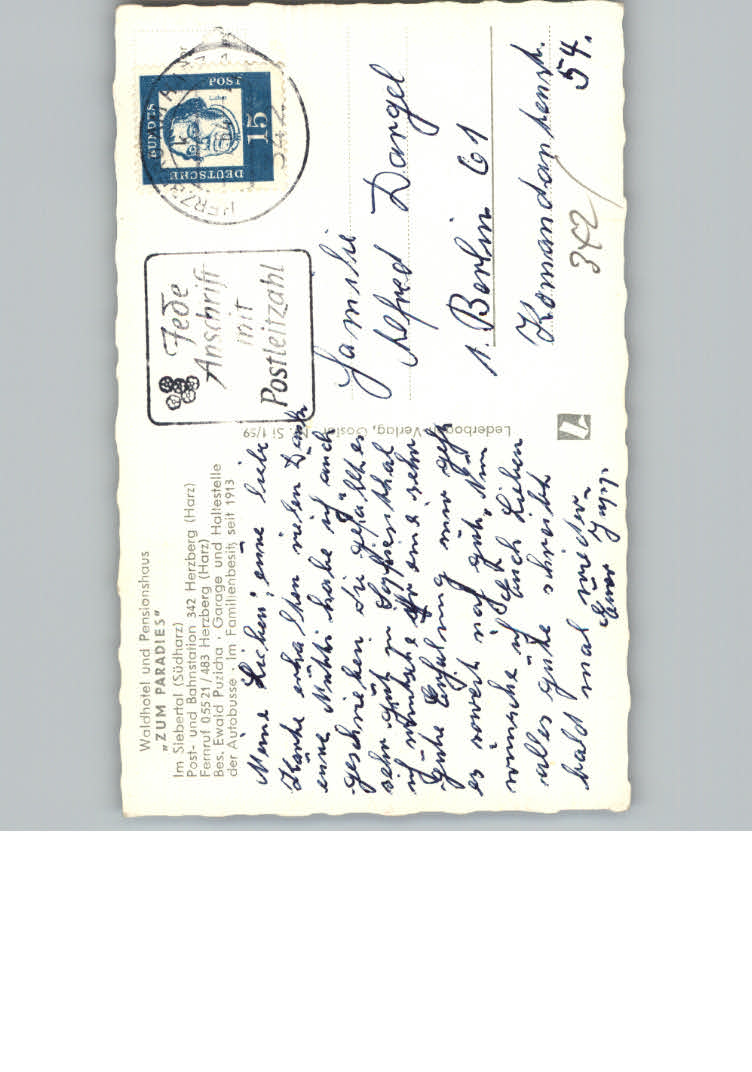 Waldhotel und Pensionshaus
„ZUM PARADIES“
Im Siebertal (Südharz)
Post- und Bahnstation 342 Herzberg (Harz)
Fernruf 05521/483 Herzberg (Harz)
Bes. Ewald Puzicha · Garage und Haltestelle
der Autobusse · Im Familienbesitz seit 1913
Meine Lieben; eure liebe
Karte erhalten vielen Dank
eure Mutti habe ich auch
geschrieben die gefällt es
sehr gut in
ich wünsche ihr eine sehr
gute mir geht
es soweit noch gut. Nun
wünsche ich euch Lieben
alles gute schreibt
bald mal wieder.
Euer
Lederbogen-Verlag, Goslar Si 1/59
DEUTSCHE
BUNDES
POST
15
HERZBERG
342
Jede
Anschrift
mit
Postleitzahl
Familie
Alfred Dargel
1. Berlin 61
Komandantenstr.
54.
342